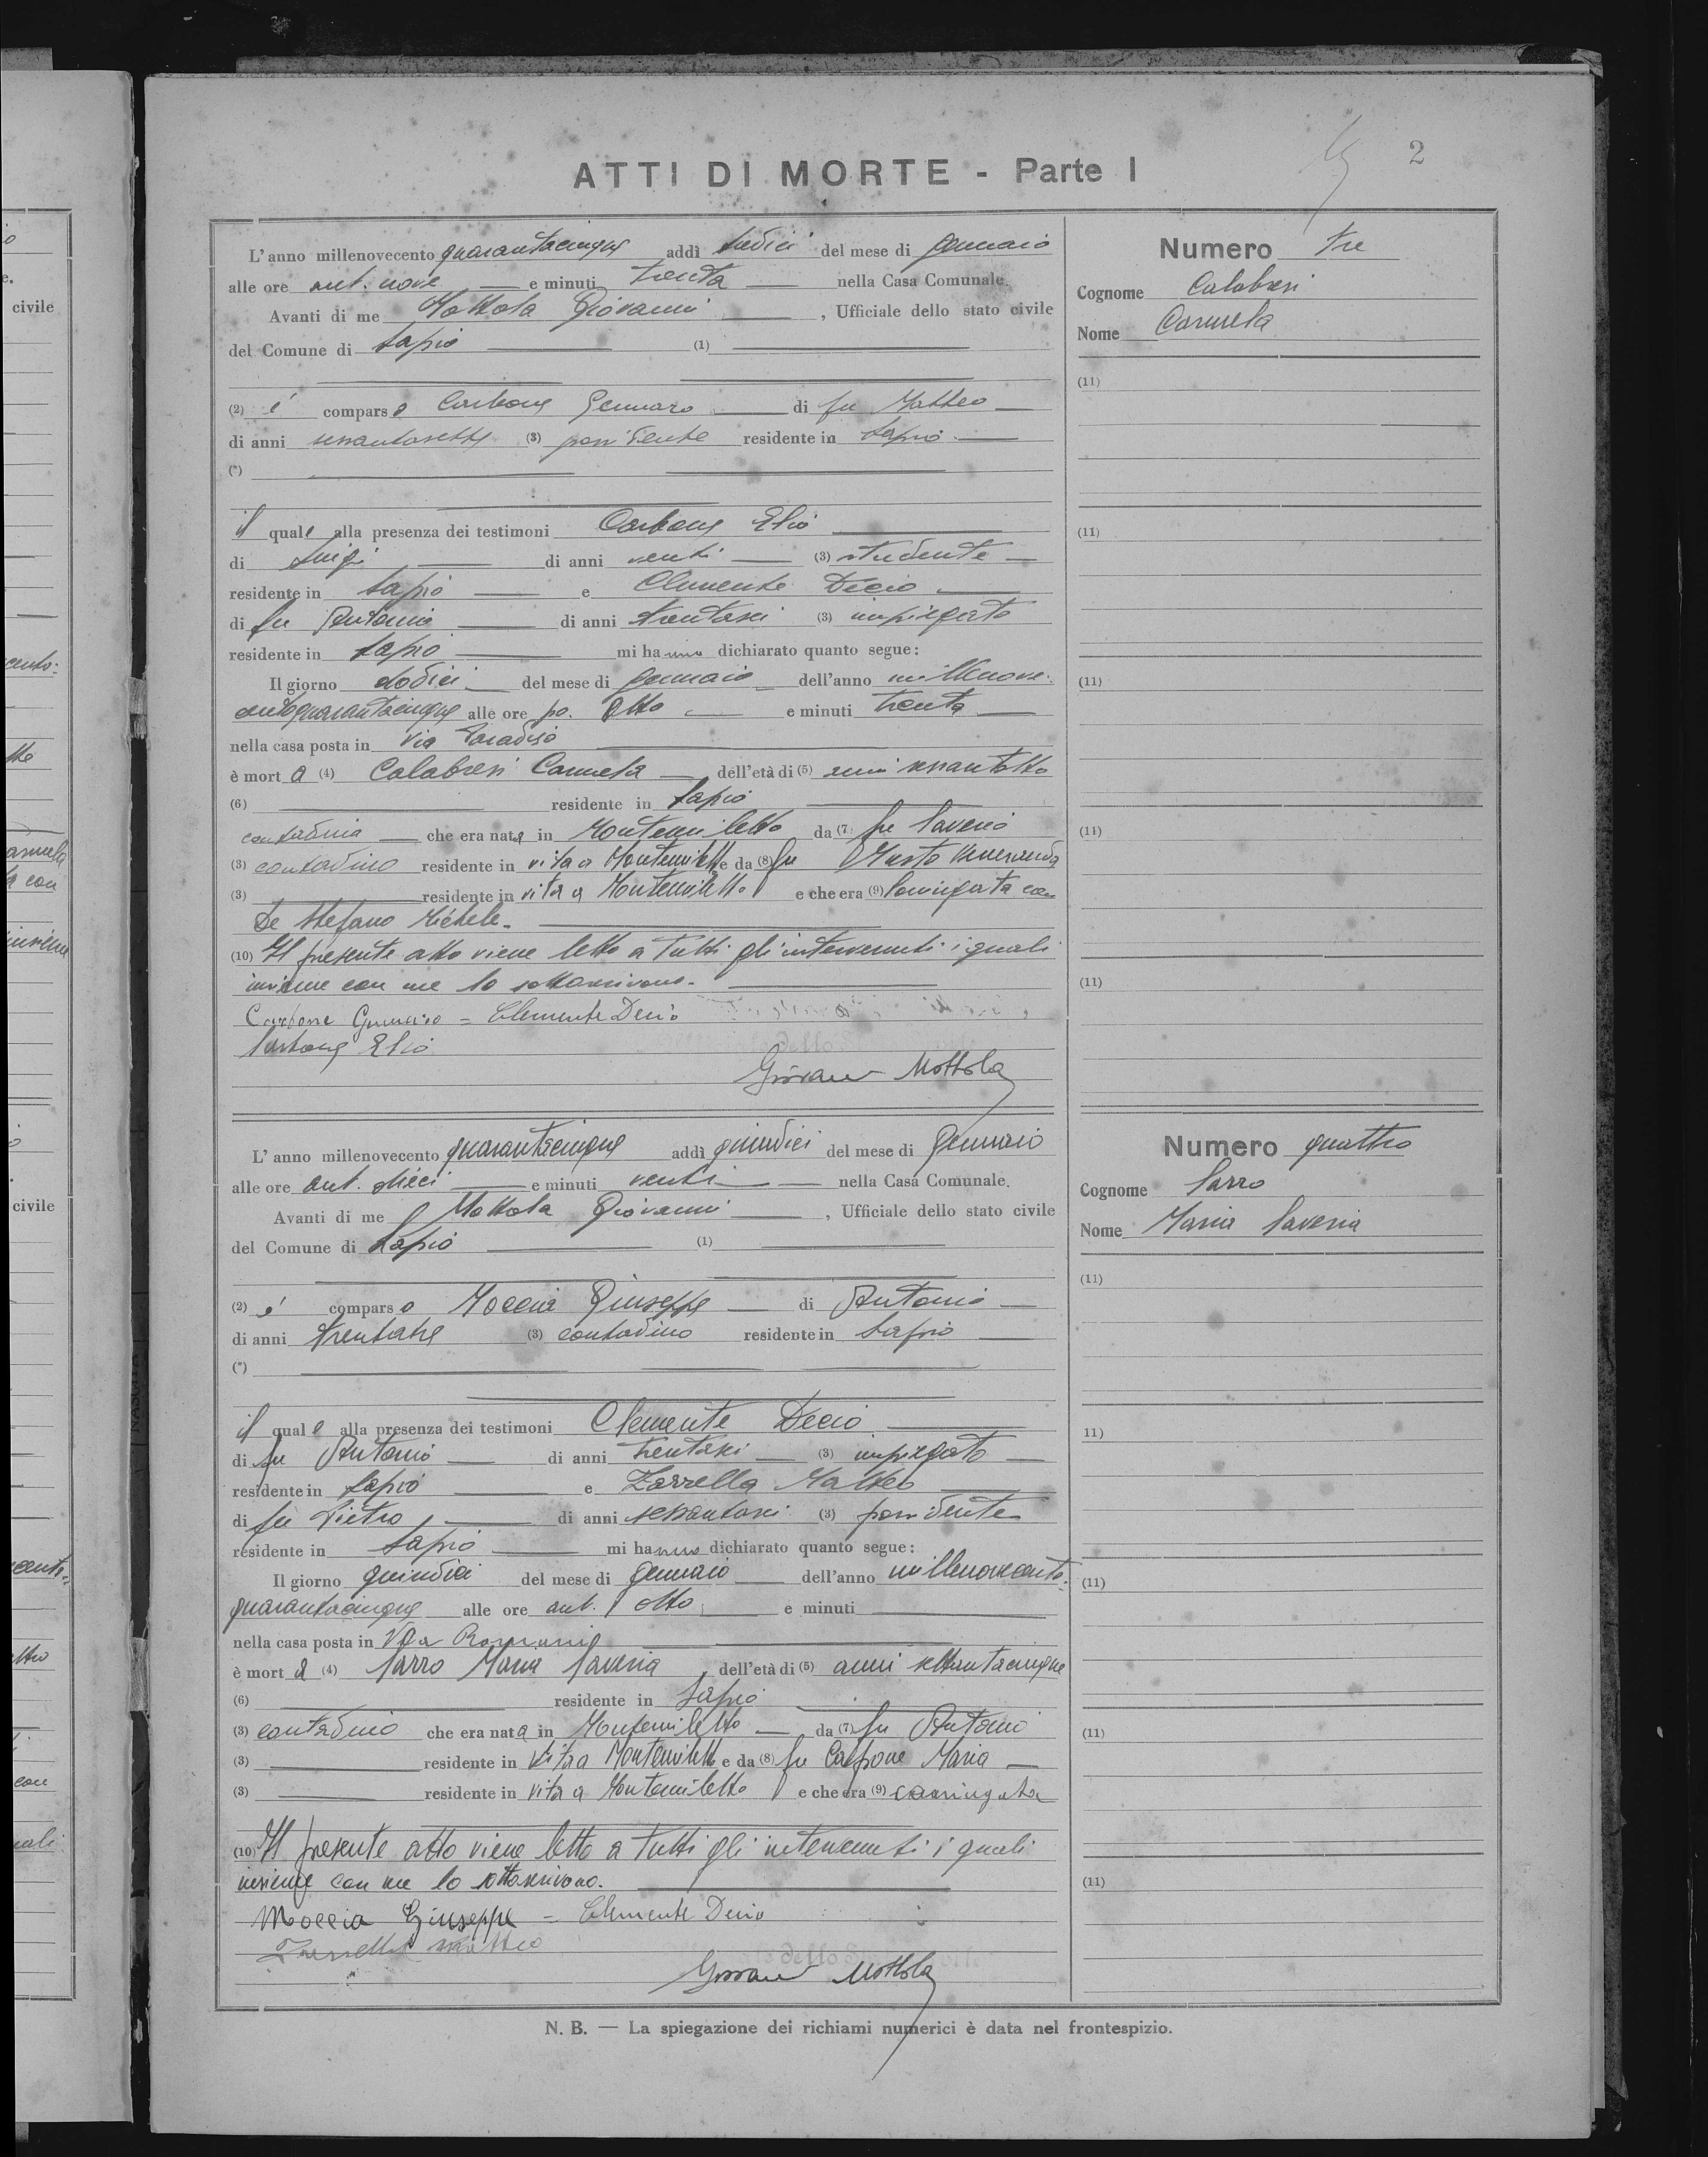 2
ATTI DI MORTE - Parte I
L'anno millenovecento quarantacinque addì tredici del mese di Gennaio
alle ore ant. nove e minuti trenta nella Casa Comunale.
Avanti di me Mottola Giovanni, Ufficiale dello stato civile
del Comune di Lapio (1)
(2) è comparso Carbone Gennaro di fu Matteo
di anni sessantasette (3) possidente residente in Lapio
(*)
il quale alla presenza dei testimoni Carbone Elio
di Luigi di anni venti (3) studente
residente in Lapio e Clemente Decio
di fu Antonio di anni trentasei (3) impiegato
residente in Lapio mi hanno dichiarato quanto segue:
Il giorno dodici del mese di Gennaio dell'anno millenove-
centoquarantacinque alle ore po. otto e minuti trenta
nella casa posta in Via Paradiso
è morta (4) Calabresi Carmela dell'età di (5) anni sessantotto
(6) residente in Lapio
contadina che era nata in Montemiletto da (7) fu Saverio
(3) contadino residente in vita a Montemiletto e da (8) fu Musto Veneranda
(3) residente in vita a Montemiletto e che era (9) Coniugata con
De Stefano Michele.
(10) Il presente atto viene letto a tutti gli intervenuti i quali
insieme con me lo sottoscrivono.
Carbone Gennaro = Clemente Decio
Carbone Elio
Giovanni Mottola
Numero tre
Cognome Calabresi
Nome Carmela
(11)
(11)
(11)
(11)
(11)
L'anno millenovecento quarantacinque addì quindici del mese di Gennaio
alle ore ant. dieci e minuti venti nella Casa Comunale.
Avanti di me Mottola Giovanni, Ufficiale dello stato civile
del Comune di Lapio (1)
(2) è comparso Moccia Giuseppe di Antonio
di anni trentatre (3) contadino residente in Lapio
(*)
il quale alla presenza dei testimoni Clemente Decio
di fu Antonio di anni trentasei (3) impiegato
residente in Lapio e Zarrella Matteo
di fu Pietro di anni sessantasei (3) possidente
residente in Lapio mi hanno dichiarato quanto segue:
Il giorno quindici del mese di Gennaio dell'anno millenovecento-
quarantacinque alle ore ant. otto e minuti
nella casa posta in Via
è morta (4) Sarro Maria Saveria, dell'età di (5) anni settantacinque
(6) residente in Lapio
(3) contadina che era nata in Montemiletto da (7) fu Antonio
(3) residente in vita a Montemiletto e da (8) fu Maria
(3) residente in vita a Montemiletto e che era (9) coniugata
(10) Il presente atto viene letto a tutti gli intervenuti i quali
insieme con me lo sottoscrivono.
Moccia Giuseppe = Clemente Decio
Zarrella Matteo
Giovanni Mottola
Numero quattro
Cognome Sarro
Nome Maria Saveria
(11)
11)
(11)
(11)
(11)
N. B. — La spiegazione dei richiami numerici è data nel frontespizio.